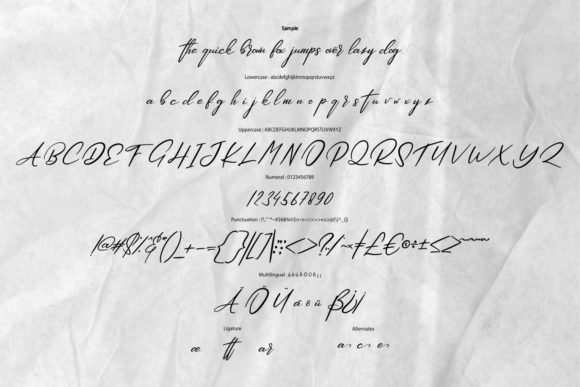 Sample
the quick brown fox jumps over lazy dog
Lowercase : abcdefghijklmnopqrstuvwxyz
a b c d e f g h i j k l m n o p q r s t u v w x y z
Uppercase : ABCDEFGHIJKLMNOPQRSTUVWXYZ
A B C D E F G H I J K L M N O P Q R S T U V W X Y Z
Numeral : 0123456789
1234567890
Punctuation :
Multilingual : ä ö ü Ä Ö Ü ß ¿ ¡
Ä Ö Ü ä ö ü ß ¿ ¡
Ligature Alternates
æ tt ar a c e